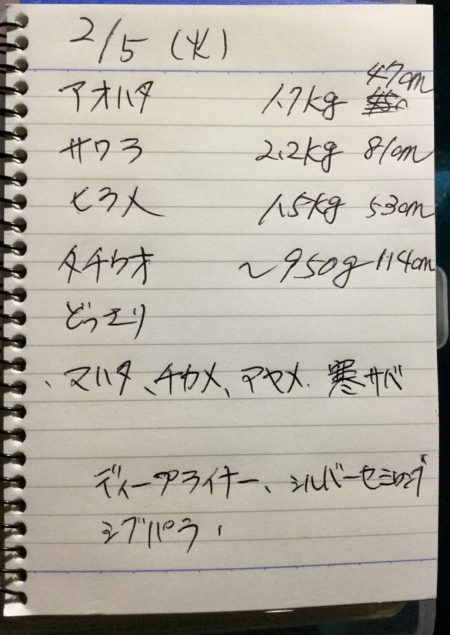 2/5 (火)
アオハタ 1.7kg 47cm
サワラ 2.2kg 81cm
ヒラメ 1.5kg 53cm
タチウオ ~950g 114cm
どっさり
、マハタ、チカメ、アヤメ、寒サバ
ディープライナー、シルバーセミロング
シブパラ、